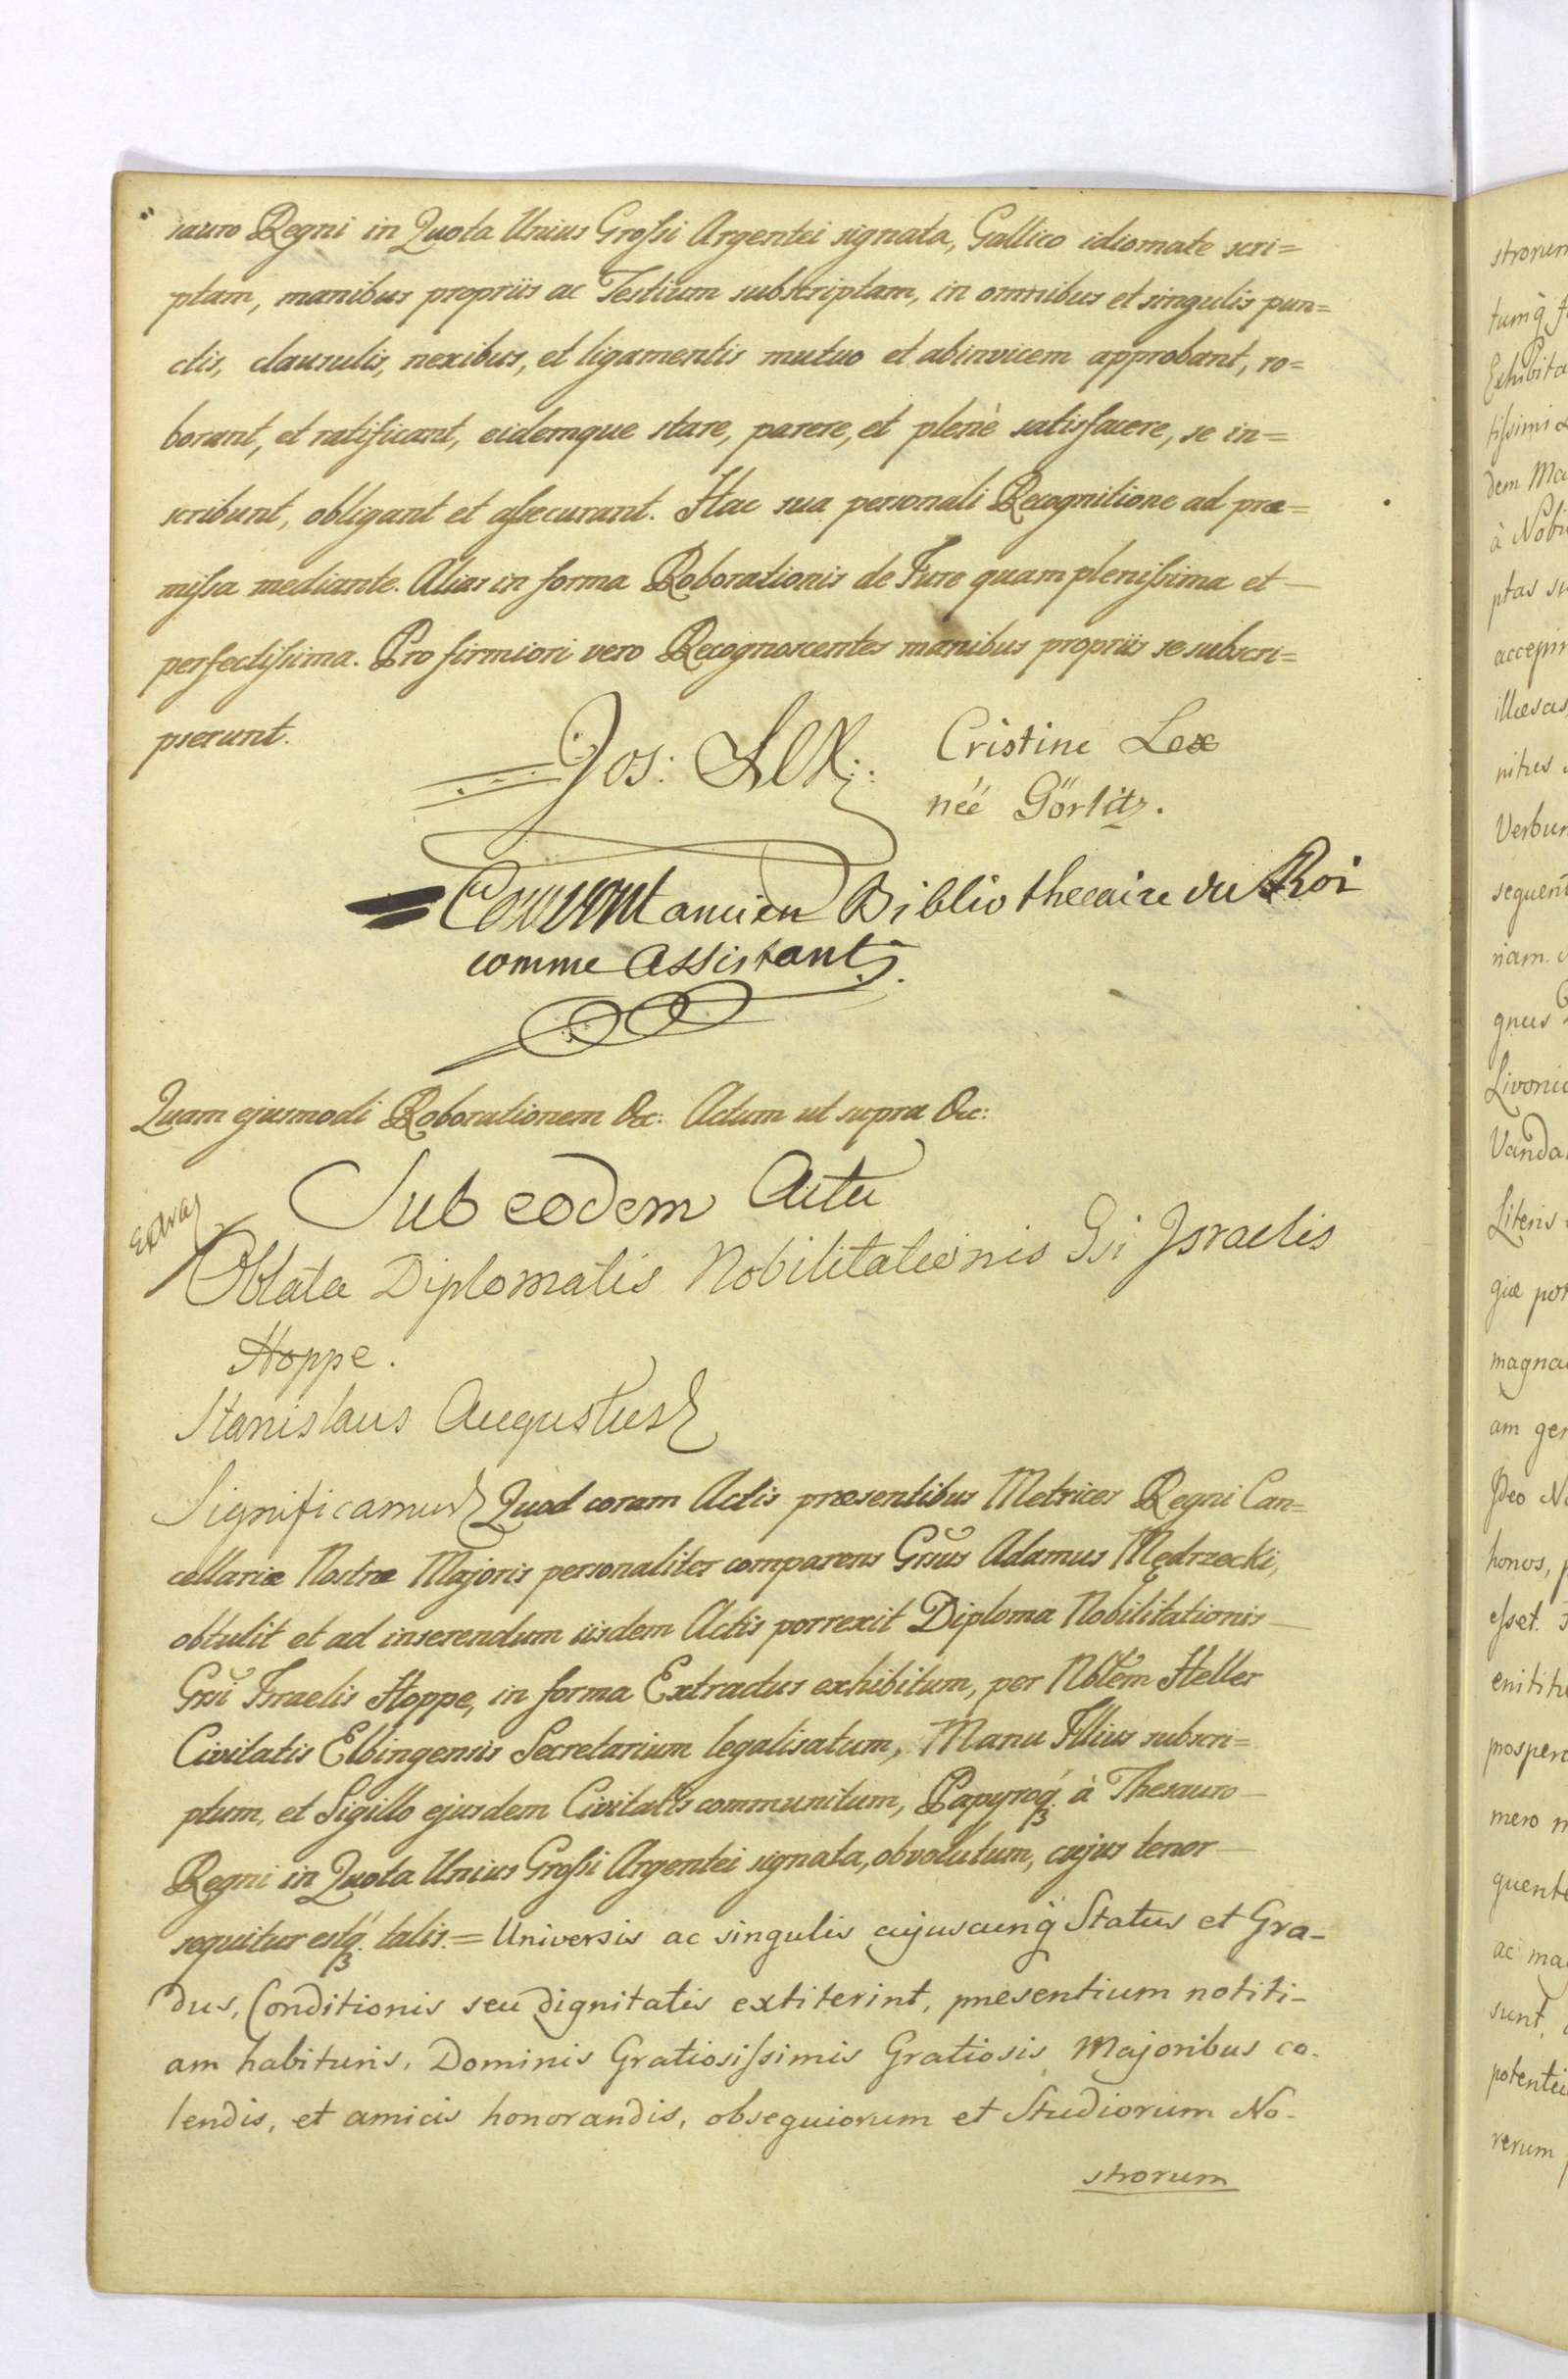 sauro Regni in Quota Unius Grossi Argentei signata, Gallico idiomate scri=
ptam, manibus propriis ac Testium subscriptam, in omnibus et singulis pun=
ctis, clausulis, nexibus, et ligamentis mutuo et abinvicem approbant, ro=
borant, et ratificant, eidemque stare, parere, et plenè satisfacere, se in=
scribunt, obligant et assecurant. Hac sua personali Recognitione ad præ=
missa mediante. Alias in forma Roborationis de Jure quam plenissima et
perfectissima. Pro firmiori vero Recognoscentes manibus propriis se subscri=
pserunt.
Jos: Lex:
Cristine Lex
néé Görlitz.
ancien Bibliothecaire du Roi
comme Assistant.
Quam ejusmodi Roborationem &c: Actum ut supra &c:
Sub eodem Actu
Oblata Diplomatis Nobilitationis Gsi Israelis
Hoppe.
Stanislaus Augustus
Significamus Quod coram Actis præsentibus Metrices Regni Can=
cellariæ Nostræ Majoris personaliter comparens Grsus Adamus Mędrzecki,
obtulit et ad inserendum iisdem Actis porrexit Diploma Nobilitationis
Grsi Israelis Hoppe, in forma Extractus exhibitum, per Nobtem Heller
Civitatis Elbingensis Secretarium legalisatum, Manu Illius subscri=
ptum, et Sigillo ejusdem Civitatis communitum, Papyroq. à Thesauro
Regni in Quota Unius Grossi Argentei signata, obvolutum, cujus tenor
sequitur estq. talis.= Universis ac singulis cujuscunq Status et Gra-
dus, Conditionis seu dignitatis extiterint, præsentium notiti-
am habituris, Dominis Gratiosissimis Gratiosis Majoribus co-
lendis, et amicis honorandis, obsequiorum et Studiorum No-
strorum